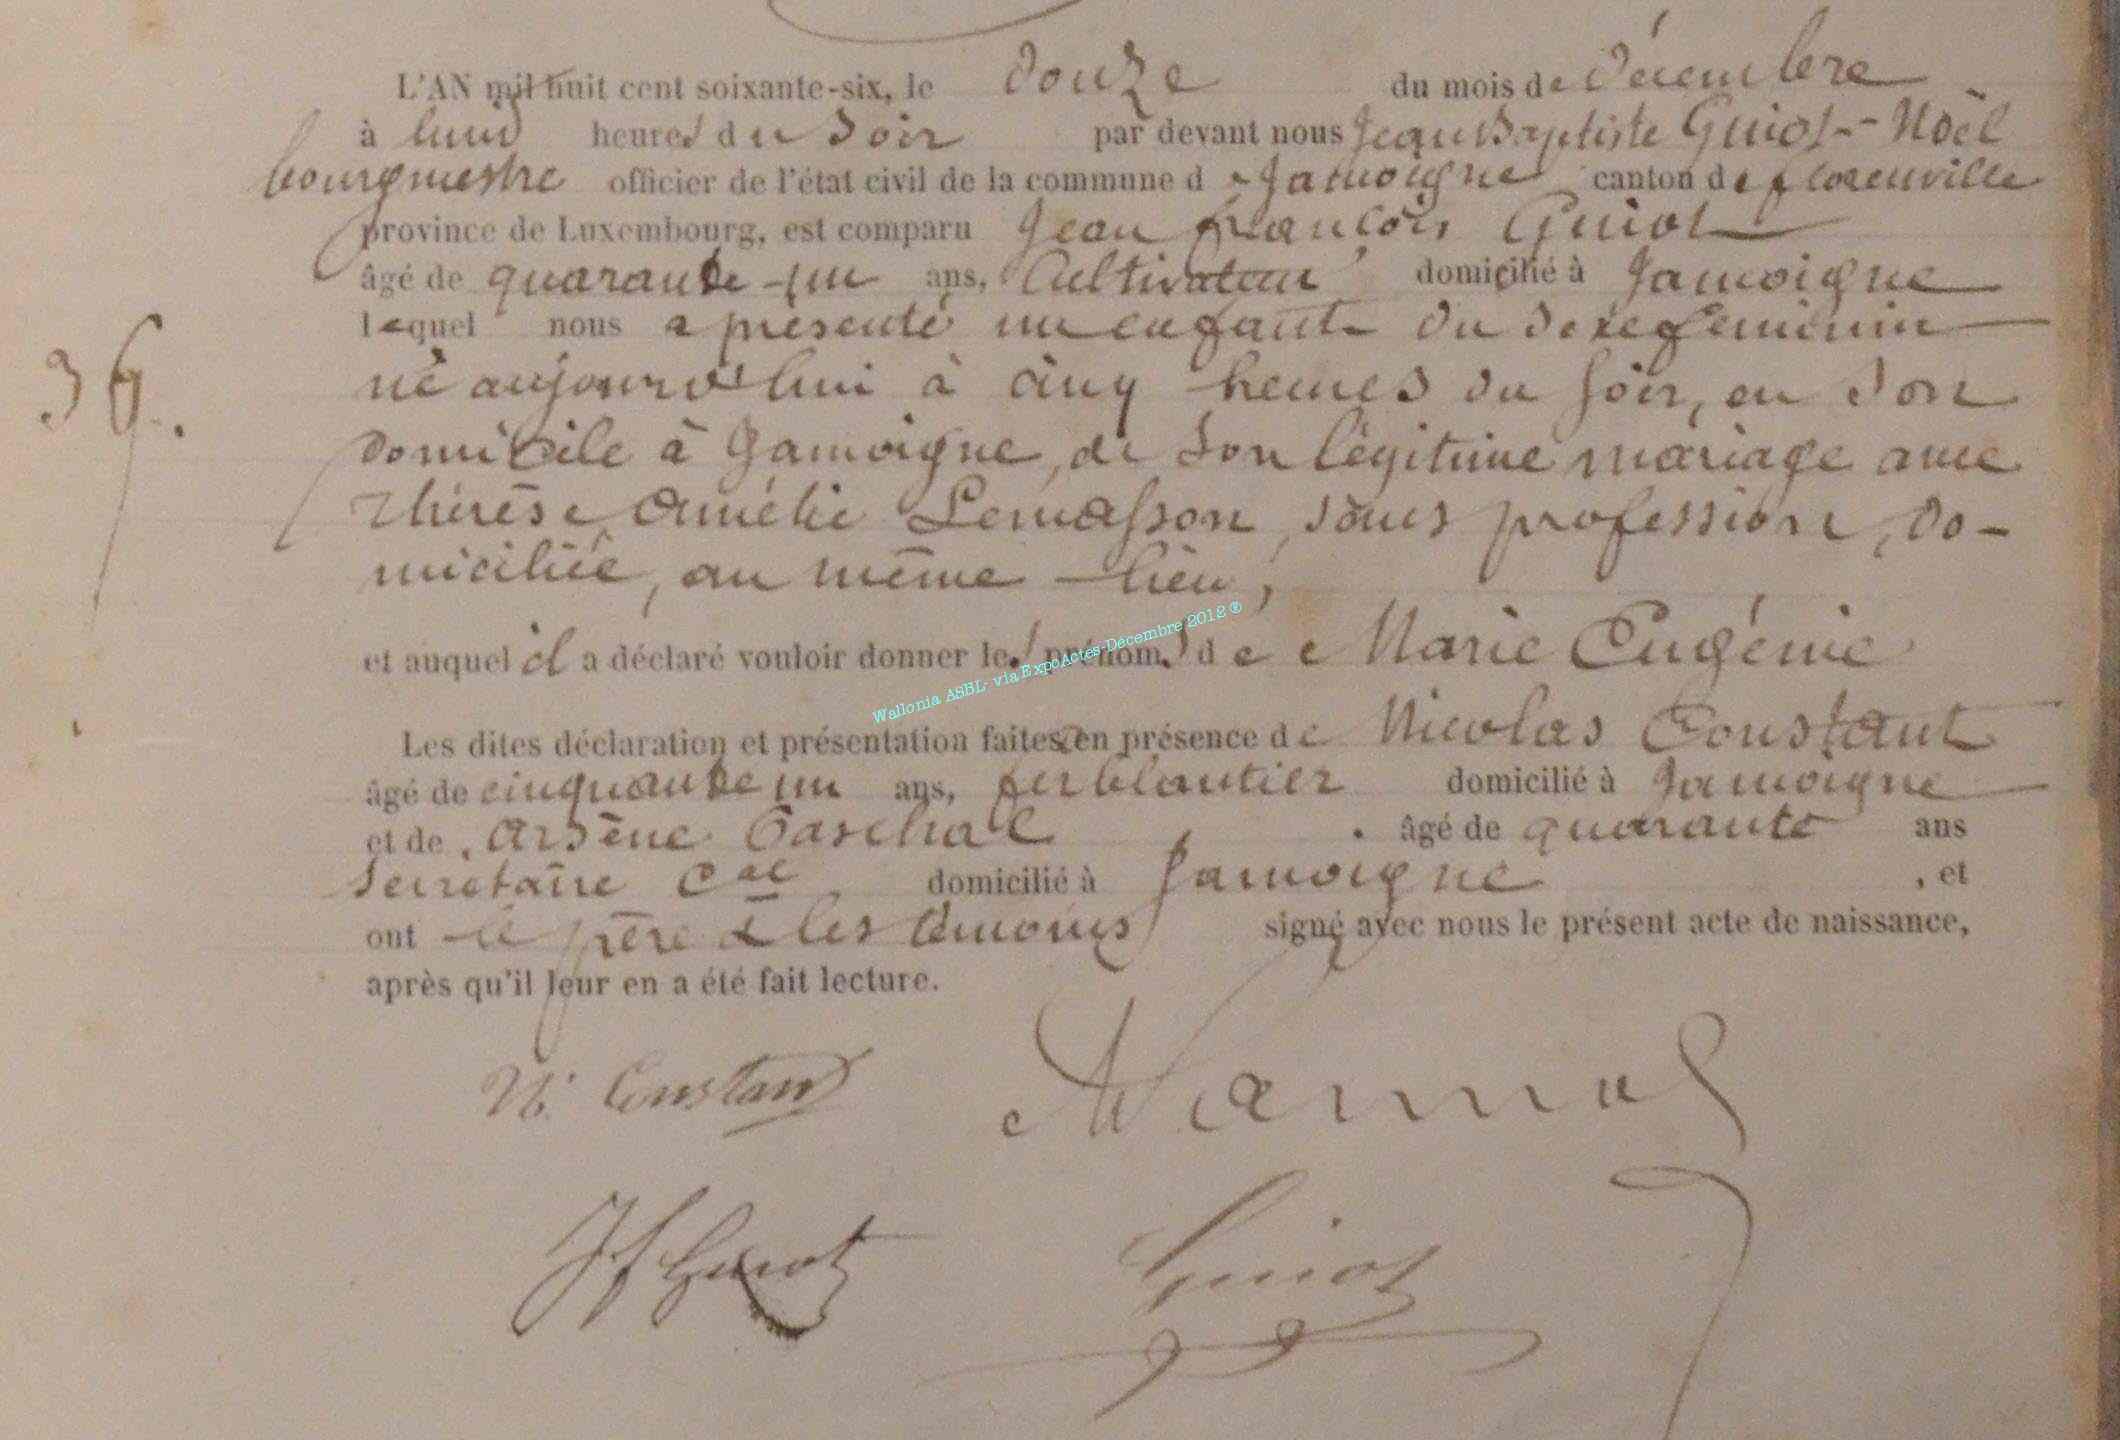 L'AN mil huit cent soixante-six, le douze du mois de décembre
à huit heures du soir par devant nous Jean Baptiste Guiot-Noël
bourgmestre officier de l'état civil de la commune de Jamoigne canton de florenville
province de Luxembourg, est comparu Jean françois Guiot
âgé de quarante-un ans, Cultivateur domicilié à Jamoigne
lequel nous a présenté un enfant du sexe féminin
né aujourd'hui à cinq heures du soir, en son
domicile à Jamoigne, de son légitime mariage avec
Thérèse Amélie Lemasson, sans profession, do-
miciliée, au même lieu,
36.
et auquel il a déclaré vouloir donner les prénoms de Marie Eugénie
Wallonia ASBL- via ExpoActes-Décembre 2012 ®
Les dites déclaration et présentation faites en présence de Nicolas Constant
âgé de cinquante un ans, ferblantier domicilié à Jamoigne
et de Arsène âgé de quarante ans
Secretaire Cal domicilié à Jamoigne, et
ont le père & les témoins signé avec nous le présent acte de naissance,
après qu'il leur en a été fait lecture.
N. Constant
JF Guiot Guiot